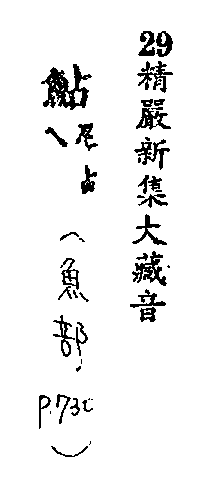 29精嚴新集大藏音
鮎
尼占
(魚部 p.73c)